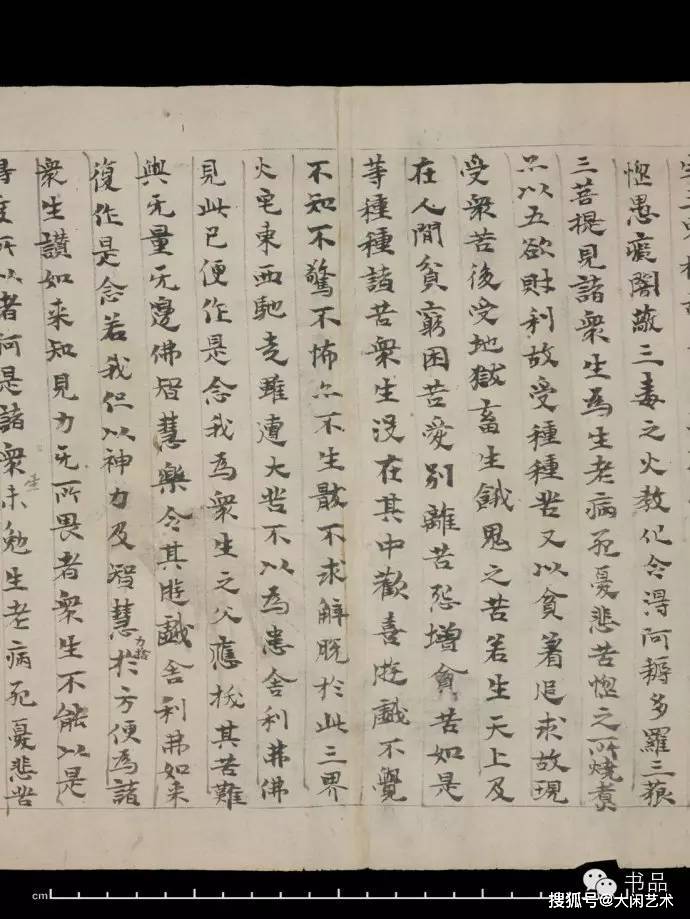 惱愚癡闇蔽三毒之火教化令得阿耨多羅三藐
三菩提見諸衆生為生老病死憂悲苦惱之所燒煮
亦以五欲財利故受種種苦又以貪著追求故現
受衆苦後受地獄畜生餓鬼之苦若生天上及
在人間貧窮困苦愛別離苦怨增會苦如是
等種種諸苦衆生没在其中歡喜遊戲不覺
不知不驚不怖亦不生骸不求解脱於此三界
火宅東西馳走雖遭大苦不以為患舍利弗佛
見此已便作是念我為衆生之父應拔其苦難
與无量无邊佛智慧樂令其遊戲舍利弗如来
復作是念若我但以神力及智慧力捨於方便為諸
衆生讃如来知見力无所畏者衆生不能以是
得度所以者何是諸衆生未勉生老病死憂悲苦
cm
书品
搜狐号@大闲艺术